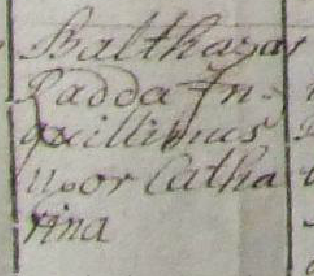 Balthazar
Radda In-
quillinus
uxor Catha
rina